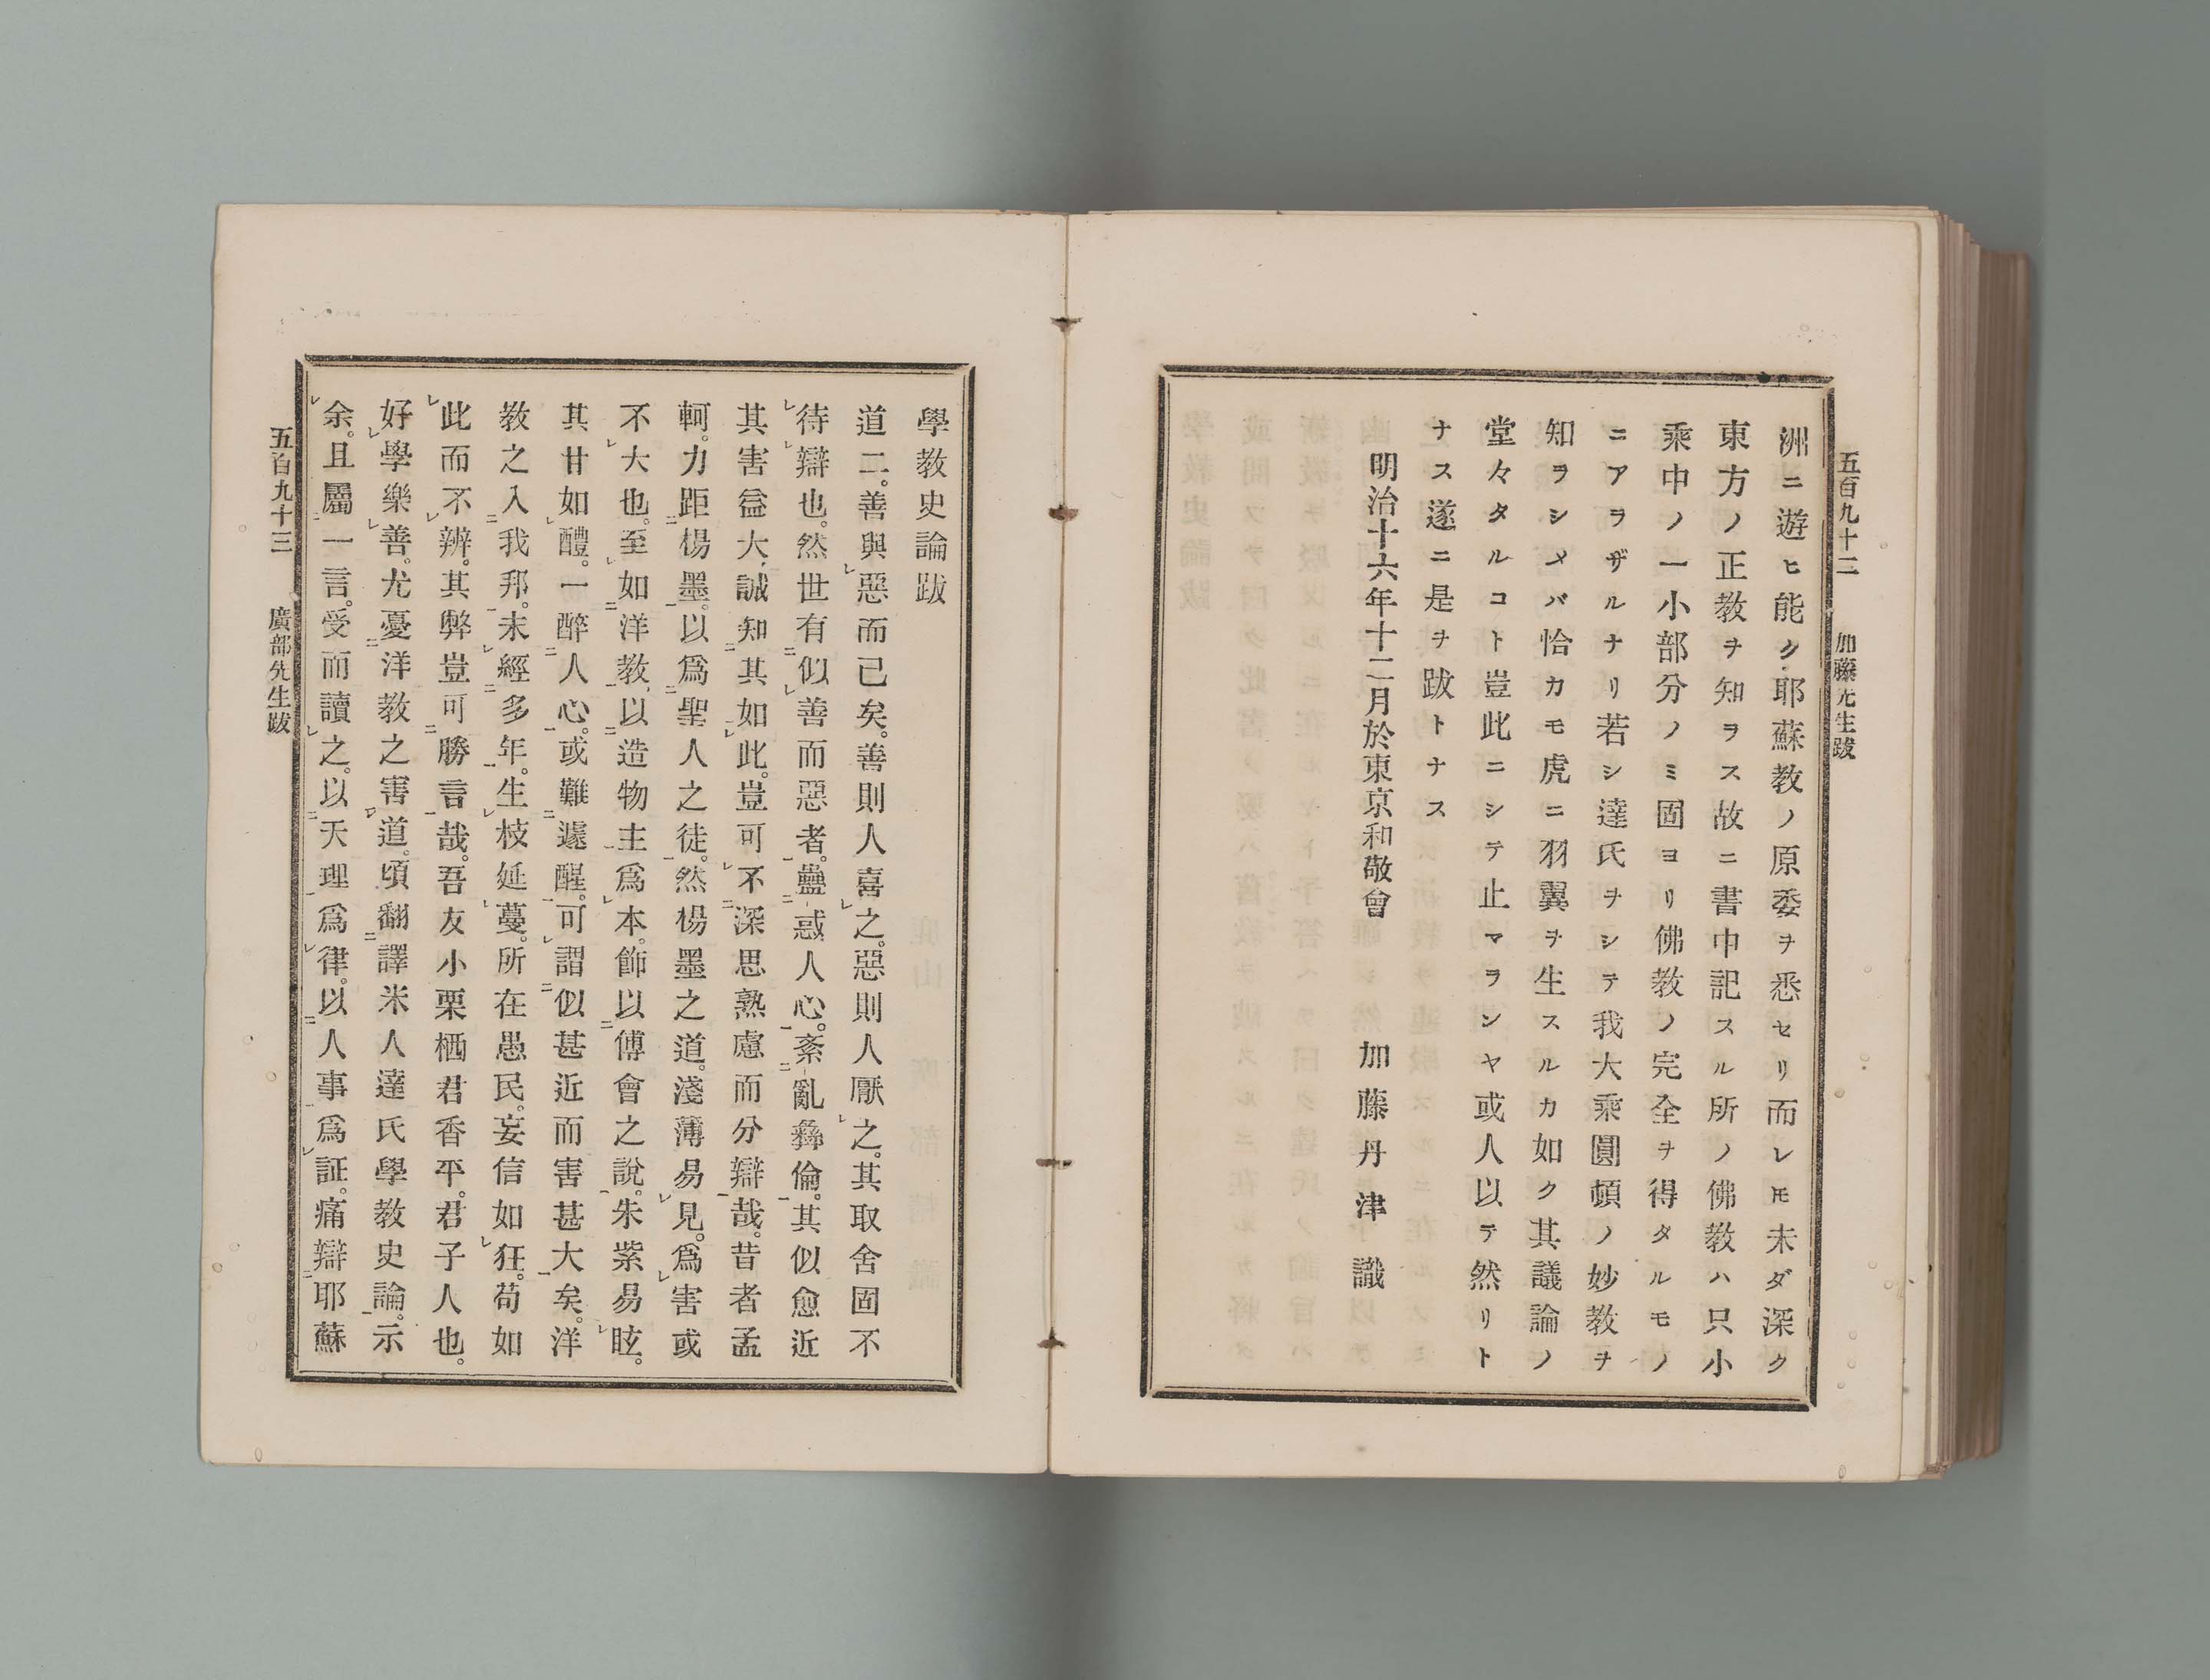 五百九十二　加藤先生跋
洲ニ遊ヒ能ク耶蘇教ノ原委ヲ悉セリ而レ𪜈未ダ深ク
東方ノ正教ヲ知ヲス故ニ書中記スル所ノ佛教ハ只小
乘中ノ一小部分ノミ固ヨリ佛教ノ完全ヲ得タルモノ
ニアラザルナリ若シ達氏ヲシテ我大乘圓頓ノ妙教ヲ
知ラシメバ恰カモ虎ニ羽翼ヲ生スルカ如ク其議論ノ
堂々タルコト豈此ニシテ止マランヤ或人以テ然リト
ナス遂ニ是ヲ跋トナス
明治十六年十二月於東京和敬會
加藤丹津識
學教史論跋
道二。善與惡而已矣。善則人喜之。惡則人厭之。其取舍固不
待辯也。然世有似善而惡者。蠱惑人心。紊亂彜倫。其似愈近
其害益大、誠知其如此。豈可不深思熟慮而分辯哉。昔者孟
軻。力距楊墨。以爲聖人之徒。然楊墨之道。淺薄易見。爲害或
不大也。至如洋教、以造物主爲本。飾以傅會之說。朱紫易眩。
其甘如醴。一醉人心。或難遽醒。可謂似甚近而害甚大矣。洋
教之入我邦。未經多年。生枝延蔓。所在愚民。妄信如狂。苟如
此而不辨。其弊豈可勝言哉。吾友小栗栖君香平。君子人也。
好學樂善。尤憂洋教之害道。頃翻譯米人達氏學教史論。示
余。且屬一言。受而讀之。以天理爲律。以人事爲証。痛辯耶蘇
五百九十三　廣部先生跋